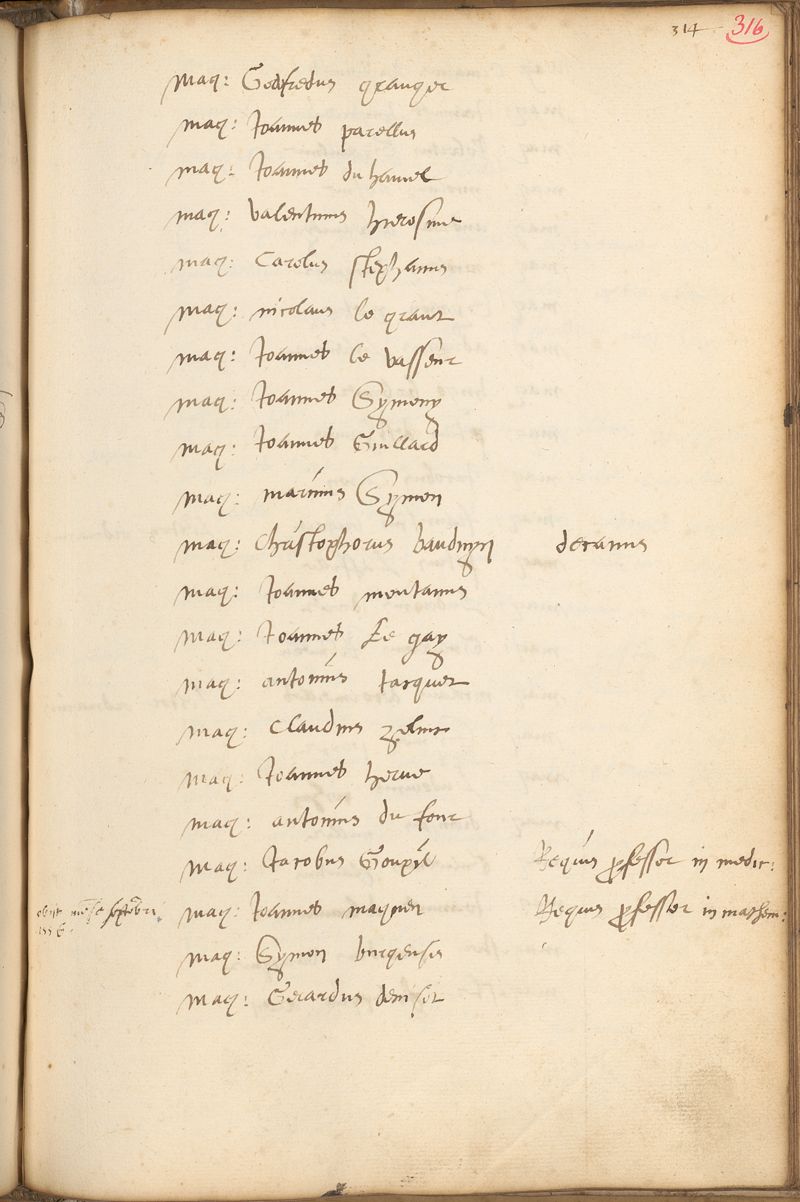 314 316
mag: Godfredus granger
mag: Joannes parellus
mag: Joannes du hamel
mag: Valentinus hierosme
mag: Carolus stephanus
mag: nicolaus le grant
mag: Joannes le vasseur
mag: Joannes Symeny
mag: Joannes Guillard
mag: martinus Symon
mag: Christophorus bauduyn decanus
mag: Joannes montanus
mag: Joannes Le gay
mag: antonius tacquet
mag: Claudius
mag: Joannes herve
mag: antonius du four
mag: Jacobus Goupyl Regius professor in medic:
obijt mense septembri mag: Joannes magnen Regius professor in mathem:
1556.
mag: Symon burgensis
mag: Gerardus deniset